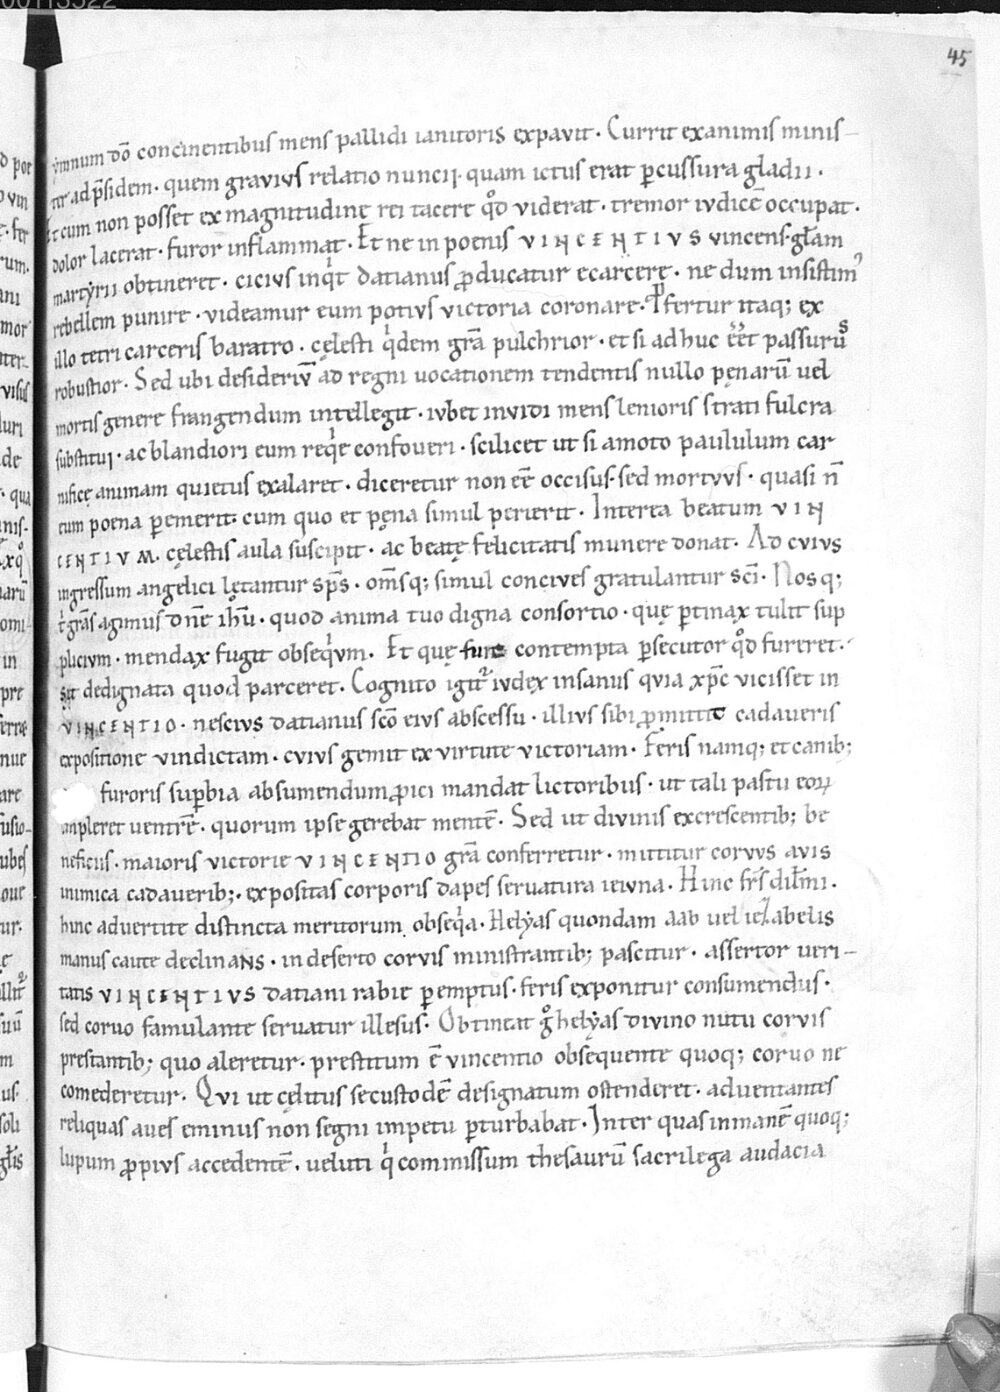 00113522
45
ẏmnum dō concinentibus mens pallidi ianitoris expavit · Currit exanimis minis-
ter ad p̄sidem · quem gravius relatio nuncii · quam ictus erat ꝑcussura gladii ·
Et cum non posset ex magnitudine rei tacere qͦd viderat · tremor iudicē occupat ·
dolor lacerat · furor inflammat · Et ne in poenis VINCENTIUS vincens · gl̄am
martẏrii obtineret · cicius inqͥt datianus ꝓducatur e carcere · ne dum insistimꝰ
rebellem punire · videamur eum potius victoria coronare · Pͬfertur itaq; ex
illo tetri carceris baratro · cęlesti qͥdem gr̄a pulchrior · et si adhuc eēt passurus
robustior · Sed ubi desideriū ad regni vocationem tendentis nullo pęnarū vel
mortis genere frangendum intellegit · iubet invidi mens lenioris strati fulcra
substitui · ac blandiori eum reqͥe confoveri · scilicet ut si amoto paululum car
nificę animam quietus exalaret · diceretur non eē occisus · sed mortuus · quasi n̄
eum poena ꝑemerit · cum quo et pęna simul perierit · Interea beatum VIN
CENTIUM · cęlestis aula suscipit · ac beatę felicitatis munere donat · Ad cuius
ingressum angelici lętantur sp̄s · om̄sq; simul concives gratulantur sc̄i · Nosq;
t̓ gr̄as agimus dn̄e ih̄u · quod anima tuo digna consortio · quę ꝑtinax tulit sup
plicium · mendax fugit obseqͥum · Et quę contempta ꝑsecutor qͦd fureret ·
sit dedignata quod parceret · Cognito igit᷑ iudex insanus quia xp̄c vicisset in
VINCENTIO · nescius datianus sc̄o eius abscessu · illius sibi ꝓmittit cadaveris
expositione vindictam · cuius gemit ex virtute victoriam · Feris namq; et canib;
furoris suꝑbia absumendum ꝓici mandat lictoribus · ut tali pastu eoꝝ
impleret ventrē · quorum ipse gerebat mentē · Sed ut divinis excrescentib; be
neficiis · maioris victorie VINCENTIO gr̄a conferretur · mittitur corvus avis
inimica cadaverib; · expositas corporis dapes servatura ieiuna · Hinc fr̄s dil̄mi ·
hinc advertite distincta meritorum obseqͥa · Helẏas quondam aab vel iezabelis
manus caute declinans · in deserto corvis ministrantib; pascitur · assertor veri-
tatis VINCENTIUS datiani rabie ꝑemptus · feris exponitur consumendus ·
sed corvo famulante servatur illesus · Obtineat gͦ helẏas divino nutu corvis
prestantib; quo aleretur · prestitum ē vincentio obsequente quoq; corvo ne
comederetur · Qui ut cęlitus se custodē designatum ostenderet · adventantes
reliquas aves eminus non segni impetu ꝑturbabat · Inter quas inmanē quoq;
lupum ꝓpius accedentē · veluti qͥ commissum thesaurū sacrilega audacia